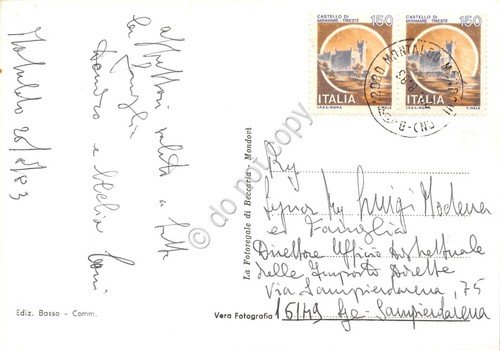 Montaldo 26/7/83
Affettuosi saluti a tutta
la famiglia
Sandro e
CASTELLO DI
MIRAMARE - TRIESTE
150
ITALIA
I.P.Z.S.-ROMA
CASTELLO DI
MIRAMARE - TRIESTE
150
ITALIA
I.P.Z.S.-ROMA
12080 MONTALDO
(CN)
© do not copy
La Fotoregale di Beccaria - Mondovì
Signor Luigi Modena
e Famiglia
Direttore Ufficio Distrettuale
delle Imposte Dirette
Via Sampierdarena, 75
16149 Ge-Sampierdarena
Ediz. Basso - Comm.
Vera Fotografia